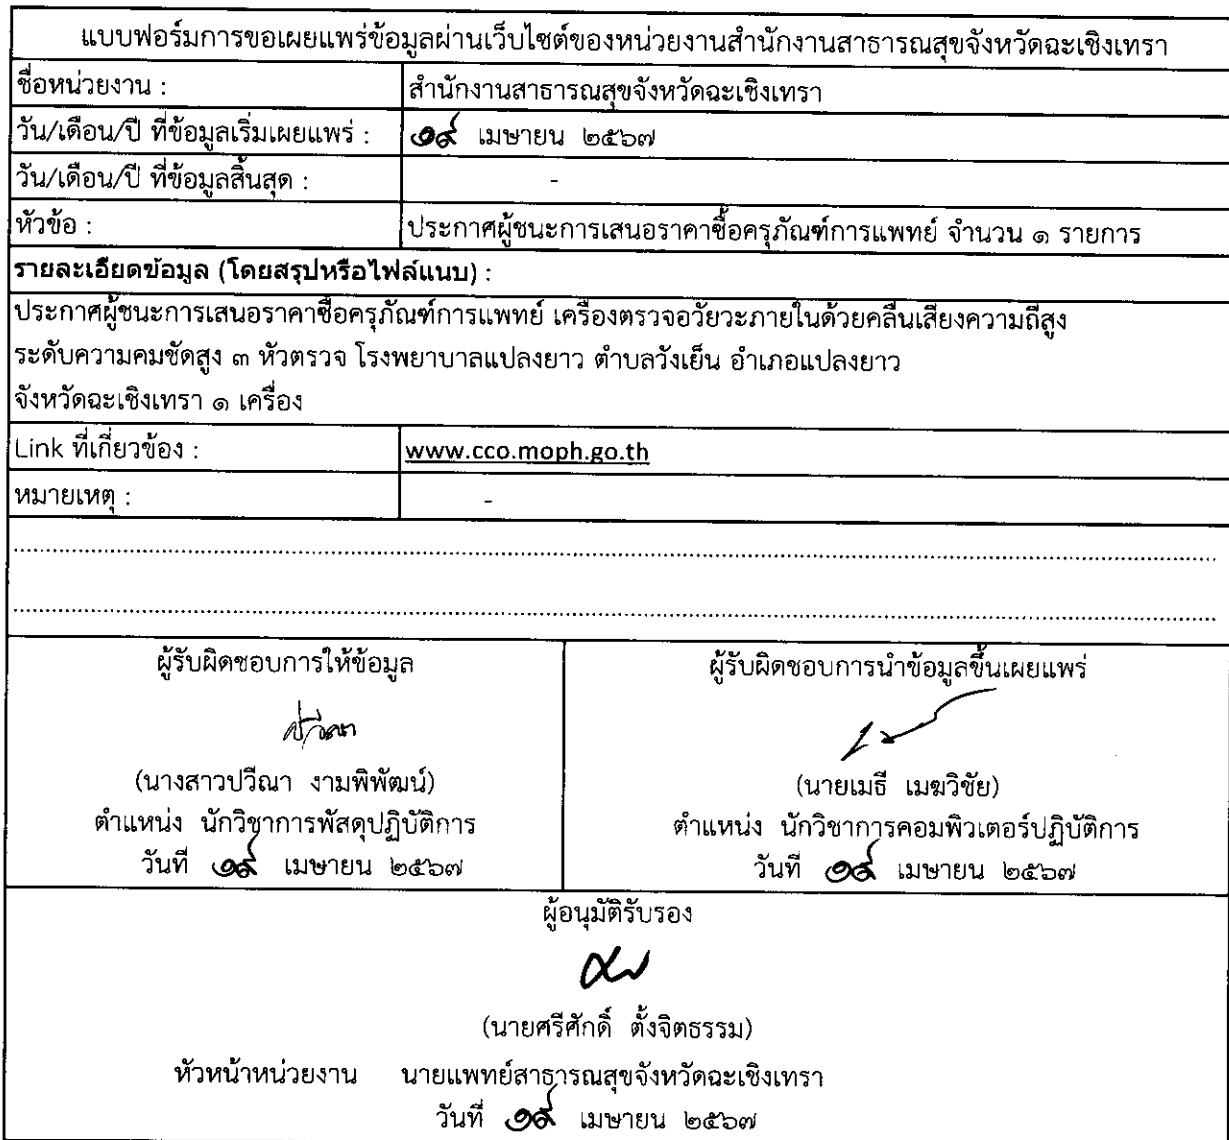 แบบฟอร์มการขอเผยแพร่ข้อมูลผ่านเว็บไซต์ของหน่วยงานสำนักงานสาธารณสุขจังหวัดฉะเชิงเทรา
ชื่อหน่วยงาน : สำนักงานสาธารณสุขจังหวัดฉะเชิงเทรา
วัน/เดือน/ปี ที่ข้อมูลเริ่มเผยแพร่ : ๑๙ เมษายน ๒๕๖๗
วัน/เดือน/ปี ที่ข้อมูลสิ้นสุด : -
หัวข้อ : ประกาศผู้ชนะการเสนอราคาซื้อครุภัณฑ์การแพทย์ จำนวน ๑ รายการ
รายละเอียดข้อมูล (โดยสรุปหรือไฟล์แนบ) :
ประกาศผู้ชนะการเสนอราคาซื้อครุภัณฑ์การแพทย์ เครื่องตรวจอวัยวะภายในด้วยคลื่นเสียงความถี่สูง
ระดับความคมชัดสูง ๓ หัวตรวจ โรงพยาบาลแปลงยาว ตำบลวังเย็น อำเภอแปลงยาว
จังหวัดฉะเชิงเทรา ๑ เครื่อง
Link ที่เกี่ยวข้อง : www.cco.moph.go.th
หมายเหตุ : -
ผู้รับผิดชอบการให้ข้อมูล
ปวีณา
(นางสาวปวีณา งามพิพัฒน์)
ตำแหน่ง นักวิชาการพัสดุปฏิบัติการ
วันที่ ๑๙ เมษายน ๒๕๖๗
ผู้รับผิดชอบการนำข้อมูลขึ้นเผยแพร่
(นายเมธี เมฆวิชัย)
ตำแหน่ง นักวิชาการคอมพิวเตอร์ปฏิบัติการ
วันที่ ๑๙ เมษายน ๒๕๖๗
ผู้อนุมัติรับรอง
(นายศรีศักดิ์ ตั้งจิตธรรม)
หัวหน้าหน่วยงาน นายแพทย์สาธารณสุขจังหวัดฉะเชิงเทรา
วันที่ ๑๙ เมษายน ๒๕๖๗